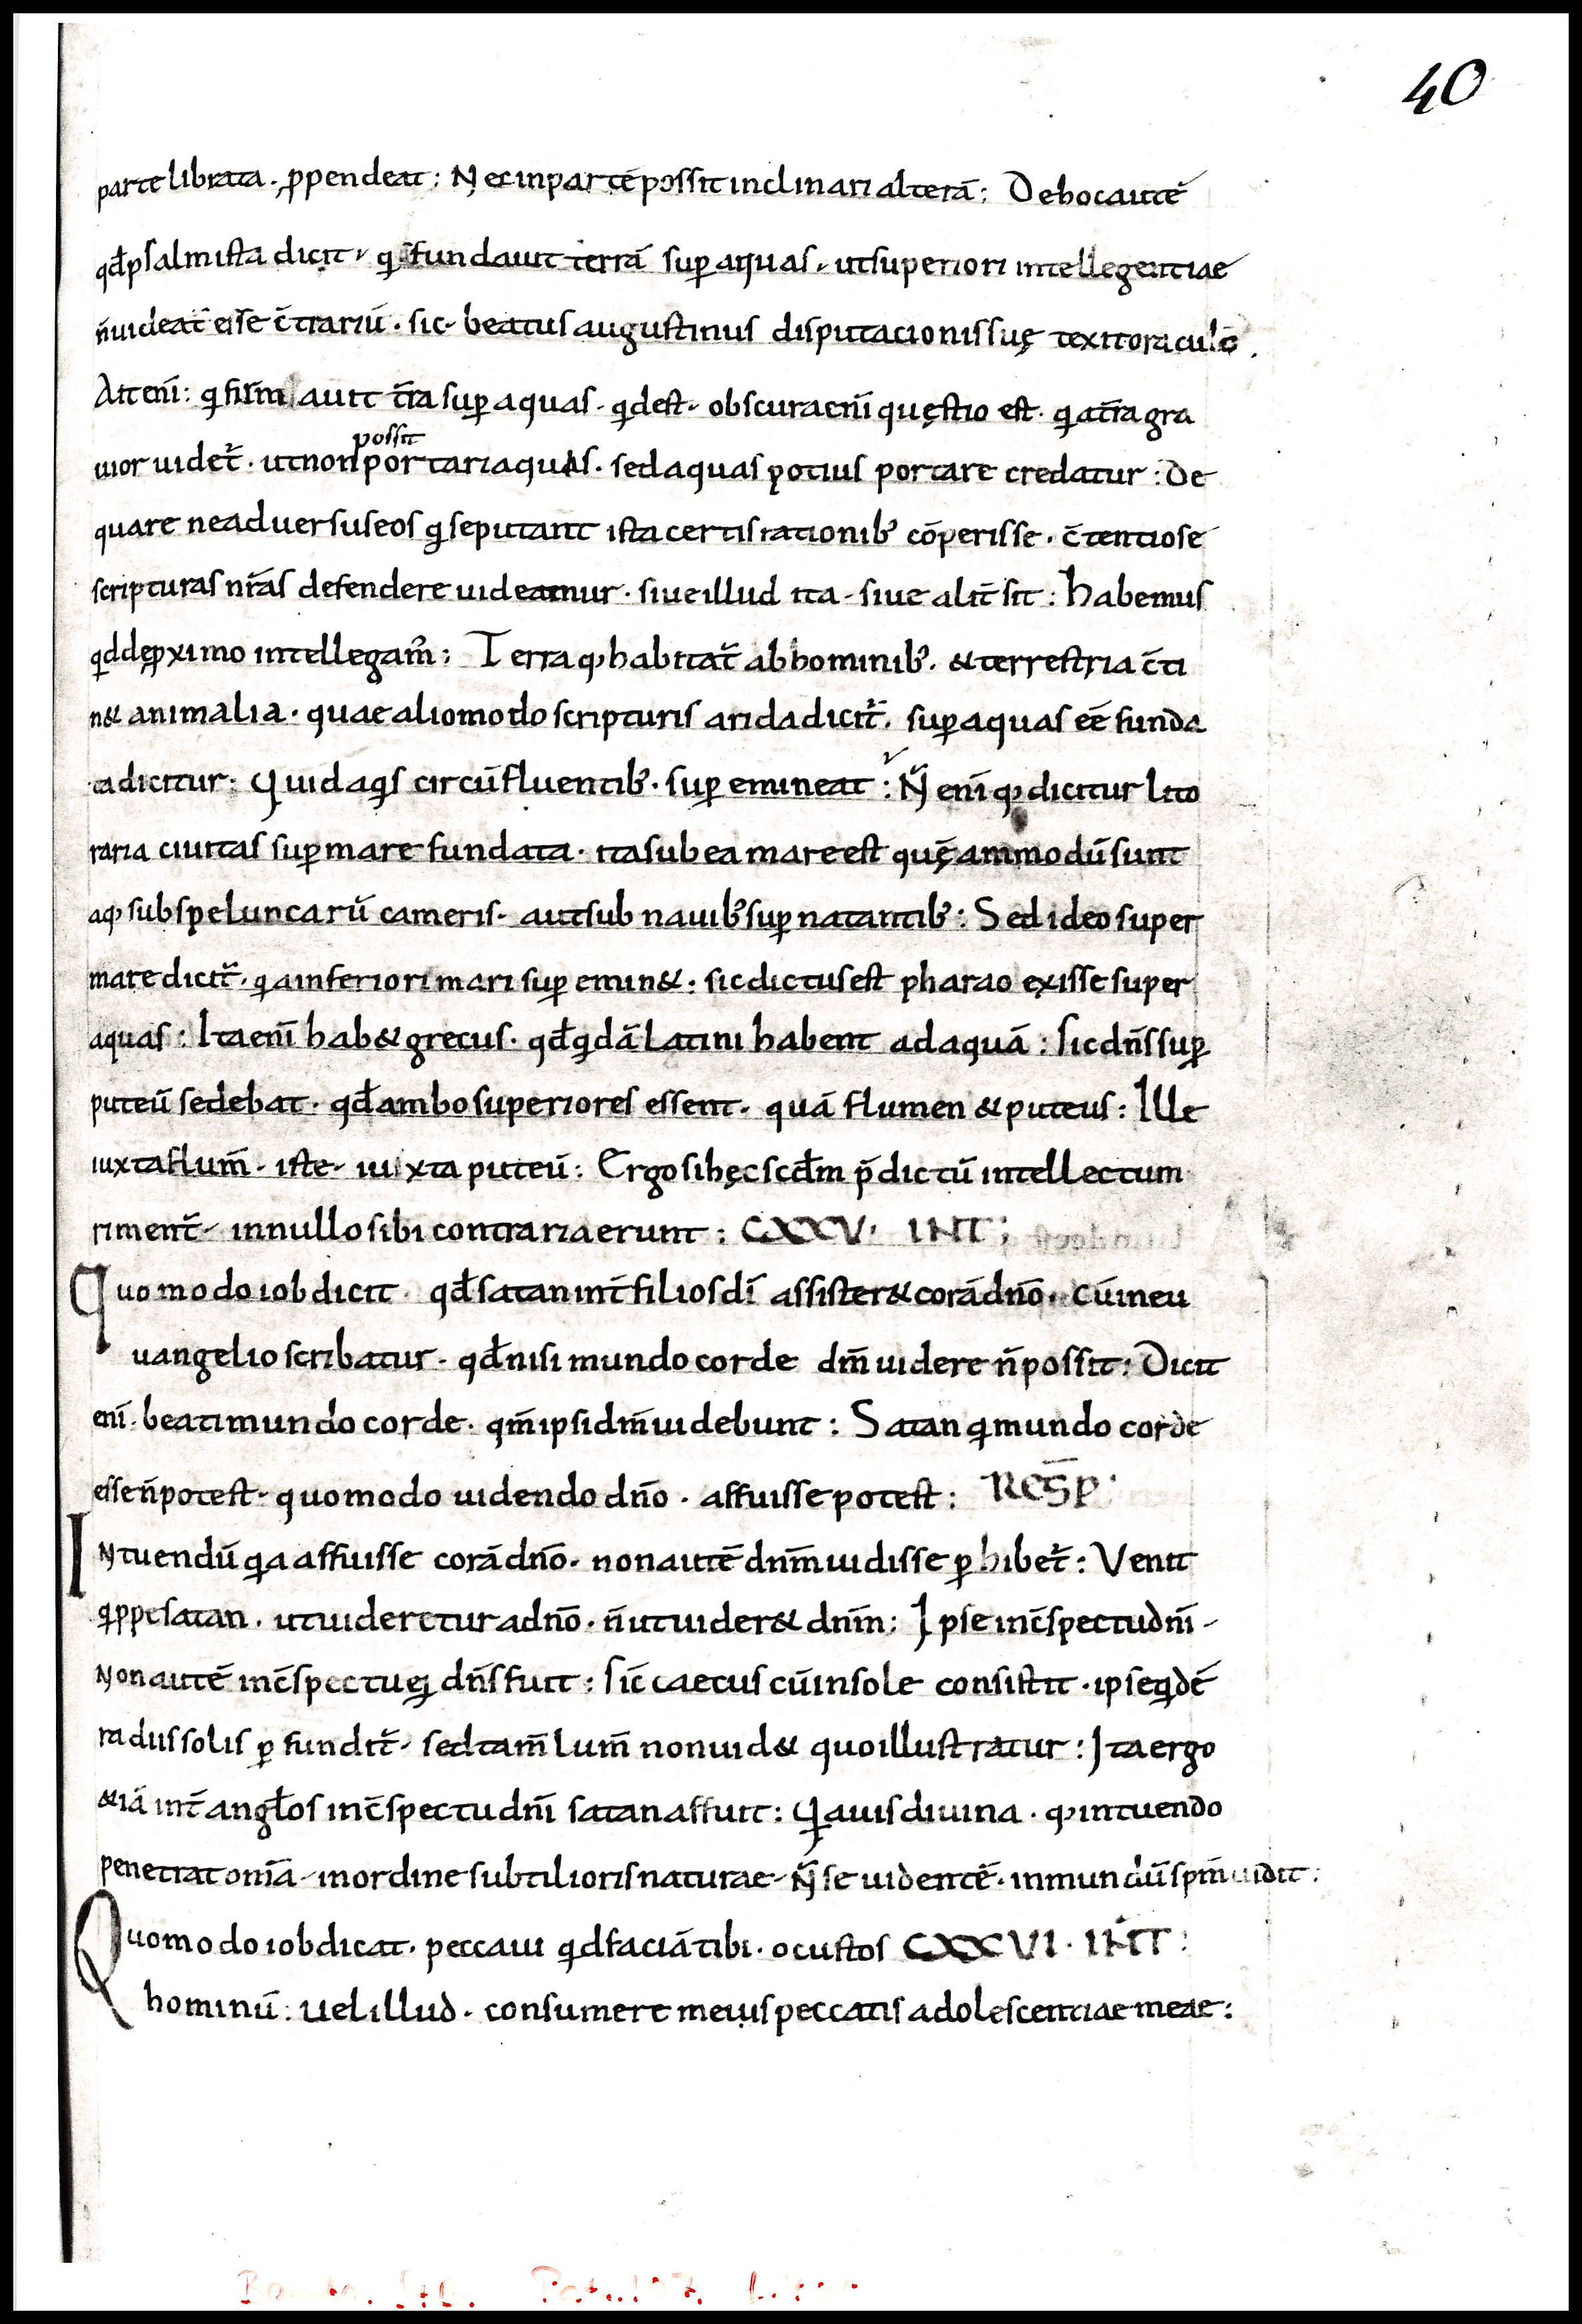 40
parte librata · ꝓpendeat : Nec in partē possit inclinari alterā : De hoc autē
qđ psalmista dicit · qͥ fundauit terrā suꝑ aquas · ut superiori intellegentiae
ñ uideat̄ esse c̄trariū · sic beatus augustinus disputacionis suę texit oraculo .
Ait enī : qͥ firmauit t̄ra suꝑ aquas · qͥd est · obscura enī quęstio est · qͥa t̄ra gra
uior uidet̄ · ut non portari aquis · sed aquas potius portare credatur : De
possit
qua re ne aduersus eos qͥ se putant ista certis rationib; cōperisse · c̄tentiose
scripturas nr̄as defendere uideamur · siue illud ita · siue alit̄ sit : habemus
qͥd de ꝓximo intellegam̄ : Terra qͦ habitat̄ ab hominib; · & terrestria c̄ti
n& animalia · quae alio modo scripturis arida dicit̄ · suꝑ aquas eē funda
ta dicitur : Quid aqͥs circūfluentib; · suꝑ emineat : Ñ enī qͦ dicitur lito
raria ciuitas suꝑ mare fundata · ita sub ea mare est quęammodū sunt
aqͦ sub speluncarū cameris · aut sub nauib; suꝑ natantib; : Sed ideo super
mare dicit̄ · qͥa inferiori mari suꝑ emin& : sic dictus est pharao exisse super
aquas : Ita enī hab& grecus · qđ qͥdā latini habent ad aquā : sic dn̄s suꝑ
puteū sedebat · qđ ambo superiores essent · quā flumen & puteus : Ille
iuxta flum̄ · iste · iuxta puteū : Ergo si hęc scđm p̄dictū intellectum
riment̄ · in nullo sibi contraria erunt : CXXV · INT :
Quomodo iob dicit · qđ satan int̄ filios dī assister& corā dn̄o · cū in eu
uangelio scribatur · qđ nisi mundo corde dm̄ uidere ñ possit : Dicit
enī · beati mundo corde · qm̄ ipsi dm̄ uidebunt : Satan qͥ mundo corde
esse ñ potest · quomodo uidendo dn̄o · affuisse potest : RESP̄ ·
INtuendū qͥa affuisse corā dn̄o · non autē dnm̄ uidisse ꝑhibet̄ : Venit
qͥppe satan · ut uideretur a dn̄o · ñ ut uider& dnm̄ : Ipse in c̄spectu dnī ·
Non autē in c̄spectu eꝰ dn̄s fuit : sic̄ caecus cū in sole consistit · ipse qͥdē
radiis solis ꝑfundit̄ · sed tam̄ lum̄ non uid& quo illustratur : Ita ergo
&iā int̄ angłos in c̄spectu dnī satan affuit : Qͥa uis diuina · qͦ intuendo
penetrat omīa · in ordine subtilioris naturae · ñ se uidentē · inmundū spm̄ uidit :
Quomodo iob dicat · peccaui qͥd faciā tibi · o custos CXXVI · INT :
hominū : uel illud · consumere me uis peccatis adolescentiae meae :